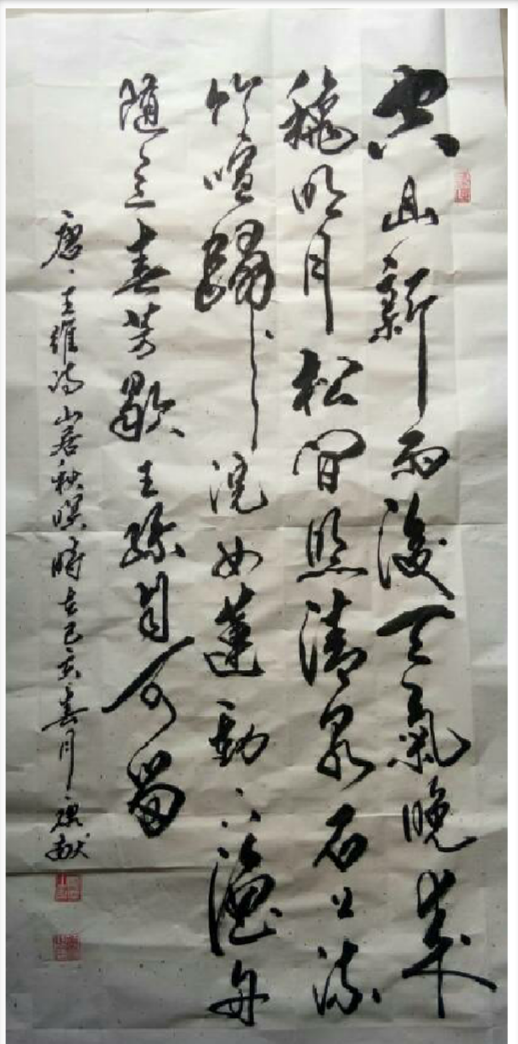 空山新雨後天氣晚來
穐明月松間照清泉石上流
竹喧歸浣女蓮動下漁舟
隨意春芳歇王孫自可留
唐王維詩山居秋暝時在己亥春月